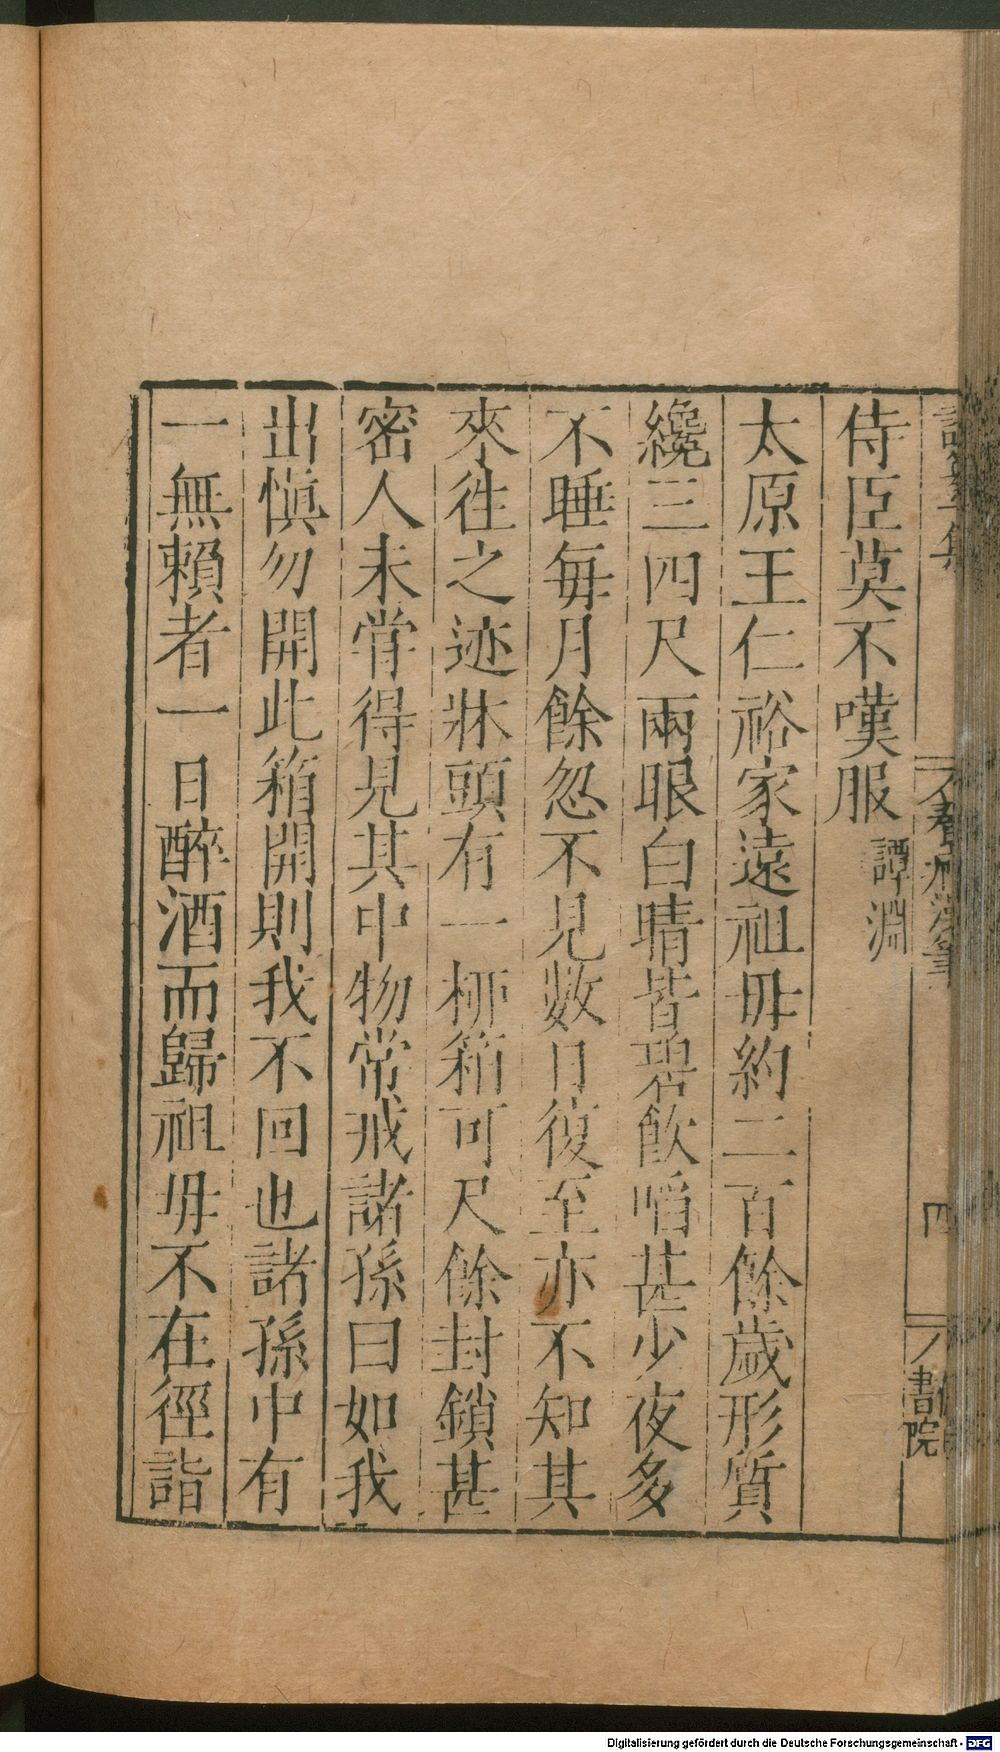 侍臣莫不嘆服 譚淵
太原王仁裕家遠祖毋約二百餘歲形質
纔三四尺兩眼白晴皆碧飲啗甚少夜多
不睡每月餘忽不見数日復至亦不知其
來徃之迹牀頭有一栁箱可尺餘封鎖甚
密人未甞得見其中物常戒諸孫曰如我
出慎勿開此箱開則我不回也諸孫中有
一無賴者一日醉酒而歸祖毋不在徑詣
四
書院
Digitalisierung gefördert durch die Deutsche Forschungsgemeinschaft - DFG